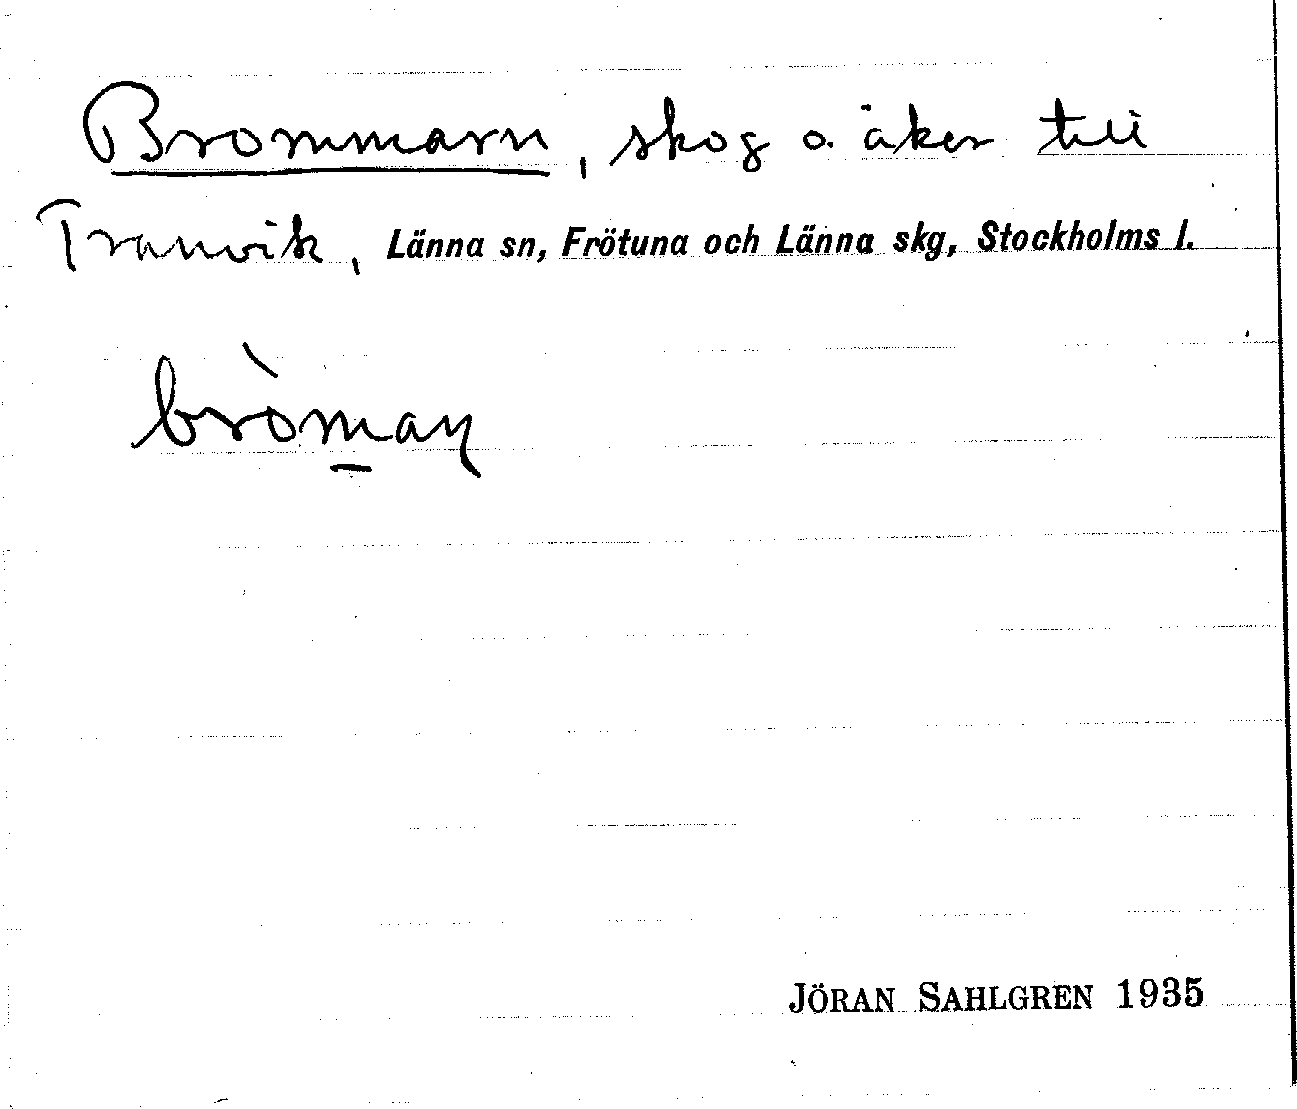 Brommarn, skog o. åker till
Tranvik, Länna sn, Frötuna och Länna skg, Stockholms l.
bròmaɳ
JÖRAN SAHLGREN 1935